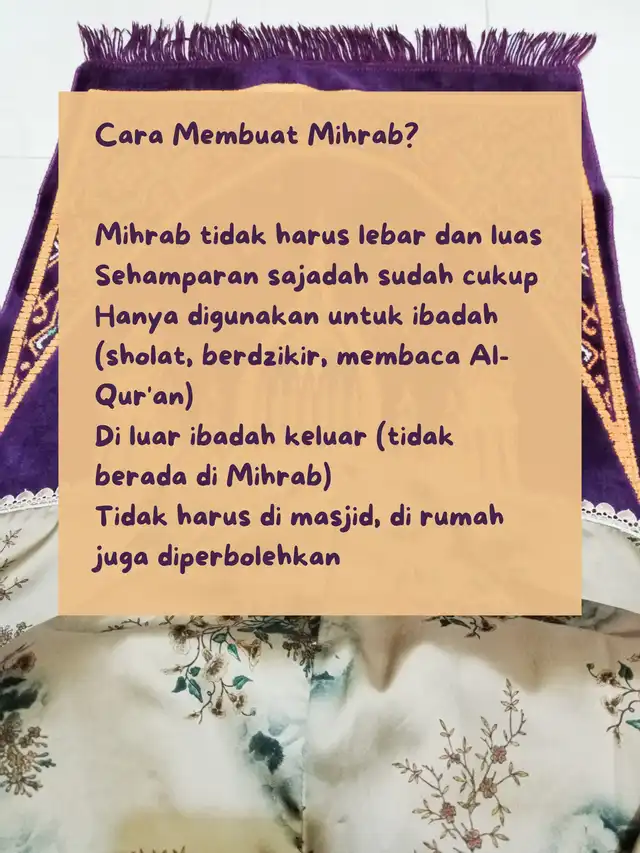 Cara Membuat Mihrab?
Mihrab tidak harus lebar dan luas
Sehamparan sajadah sudah cukup
Hanya digunakan untuk ibadah
(sholat, berdzikir, membaca Al-
Qur'an)
Di luar ibadah keluar (tidak
berada di Mihrab)
Tidak harus di masjid, di rumah
juga diperbolehkan